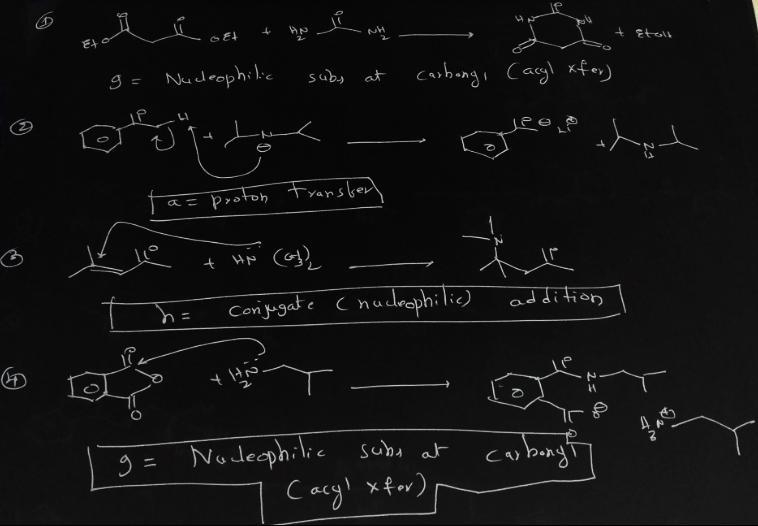 ① EtO O O OEt + H2N O NH2 HN O NH O O + EtOH
g = Nucleophilic subs at carbonyl (acyl xfer)
② O H + N ⊖ O ⊖ Li⊕ + N H
a = proton transfer
③ O + HN (CH3)2 N O
h = conjugate (nucleophilic) addition
④ O O O + H2N O N H O O⊖ H3N⊕
g = Nucleophilic subs at carbonyl
(acyl xfer)